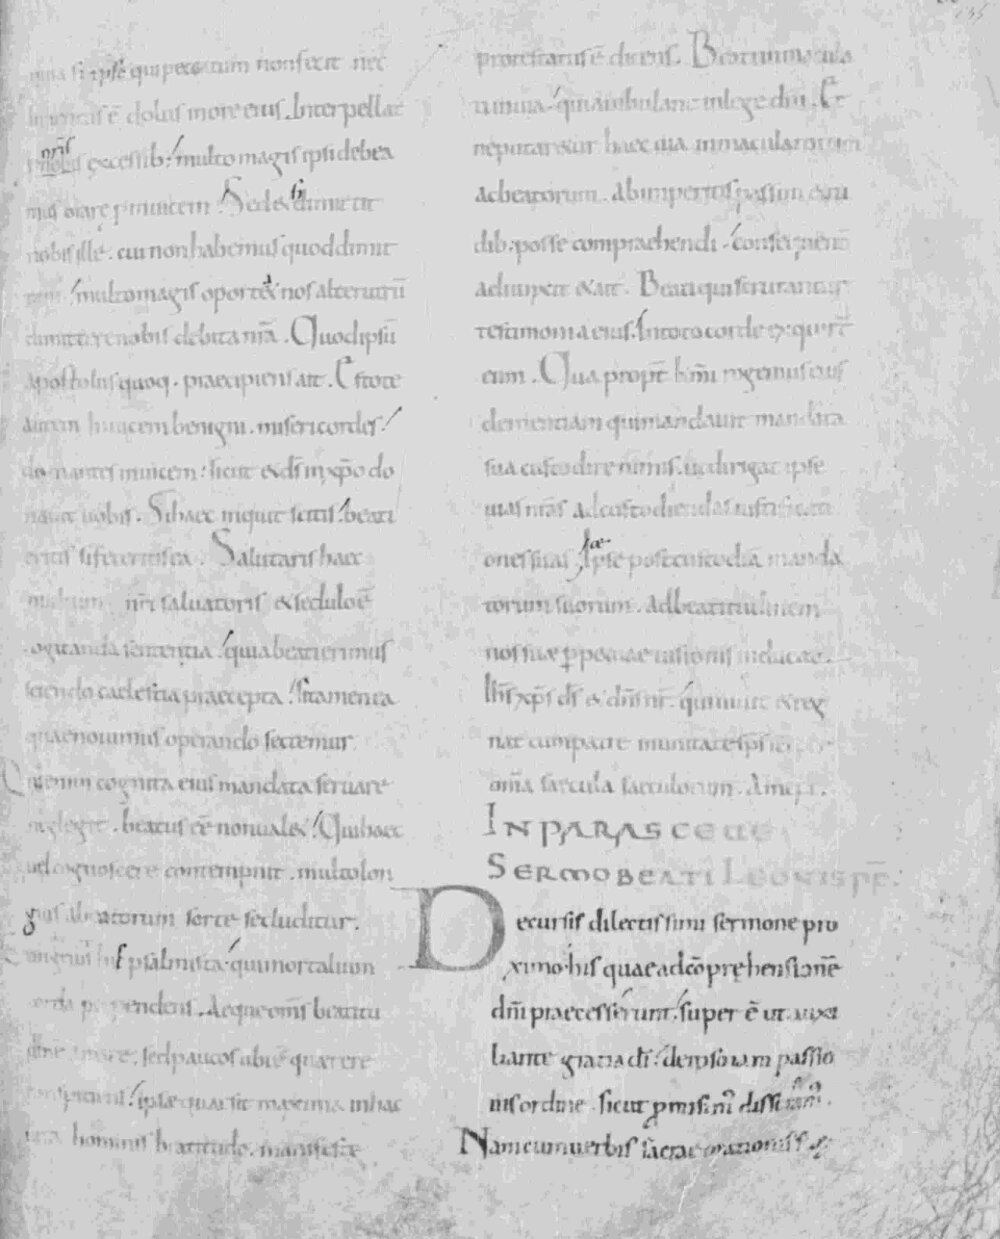 si ipse qui peccatum non fecit nec
inventus ē dolus in ore eius. Interpellat
p nobis nr̄is excessib; multo magis ipsi debea
mus orare p invicem. Sed et si dimittit
nobis ille. cui non habemus quod dimit
multo magis oportet nos alterutrū
dimittere nobis debita nr̄a. Quod ipsū
apostolus quoq. praecipiens ait. Estote
autem invicem benigni. misericordes.
donantes invicem. sicut et ds̄ in xp̄o do
navit vobis. Si haec inquit scitis. beati
eritis si feceritis ea. Salutaris haec
nr̄i salvatoris et sedulo ē
cogitanda sententia. quia beati erimus
sciendo caelestia praecepta. si tamen ea
quae novimus operando sectemur.
Qui enim cognita eius mandata servare
neglegit. beatus eē non valet. Qui haec
vel cognoscere contempnit. multo lon
gius a beatorum sorte secluditur.
psalmista. qui mortalium
corda perpendens. Atque om̄s beatitu
dine amore. sed paucos ubi ē quaerere
conspiciens. ipse quae sit maxima in hac
vita hominis beatitudo. manifeste
protestatus ē dicens. Beati inmacula
ti in via. qui ambulant in lege dn̄i. Et
ne putaretur haec via inmaculatorum
ac beatorum. ab imperitos passim et ru
dib; posse comprachendi. consequent̄
adiungit et ait. Beati qui scrutantur
testimonia eius. In toto corde exquir̄t
eum. Qua propt̄ hum̄i rogemus eius
clementiam qui mandavit mandata
sua custodire nimis. ut dirigat ipse
vias nr̄as ad custodiendas iustificati
ones suas. Ipse post custodiā manda
torum suorum. ad beatitudinem
nos suae ppetuae visionis inducat.
Ih̄s xp̄s ds̄ et dn̄s nr̄. qui vivit et reg
nat cum patre in unitate sp̄s
om̄a saecula saeculorum. Amen.
IN PARASCEUE
SERMO BEATI LEONIS PP̄.
Decursis dilectissimi sermone pro
ximo. his quae ad cōprehensionē
dn̄i praecesserunt. super ē ut auxi
liante gratia dī. de ipso iam passio
nis ordine. sicut pmisim̄ disseram̄.
Nam cum verbis sacrae orationis